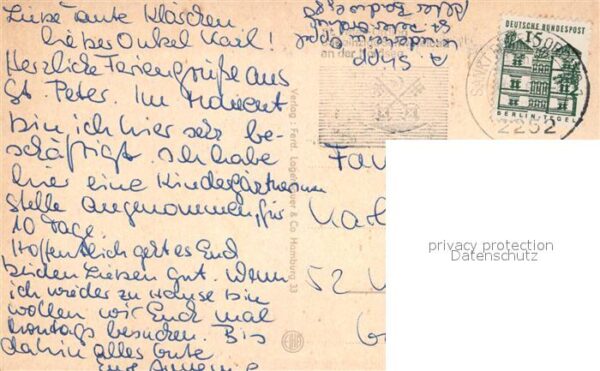 Liebe Tante Kläschen
lieber Onkel Karl!
Herzliche Feriengrüße aus
St Peter. Im Moment
bin ich hier sehr be-
schäftigt. Ich habe
hier eine Kindergärtnerinn
stelle angenommen, für
10 Tage.
Hoffentlich geht es Euch
beiden Lieben gut. Wenn
ich wieder zu Hause bin
wollen wir Euch mal
sonntags besuchen. Bis
dahin alles Gute
Eure
A. Stipp
Oppel
St. Peter Ording
an der Nordsee
Verlag: Ferd. Lagerbauer & Co Hamburg 33
DEUTSCHE BUNDESPOST
15
BERLIN-TEGEL
2252
Fa
Karl
52
privacy protection
Datenschutz